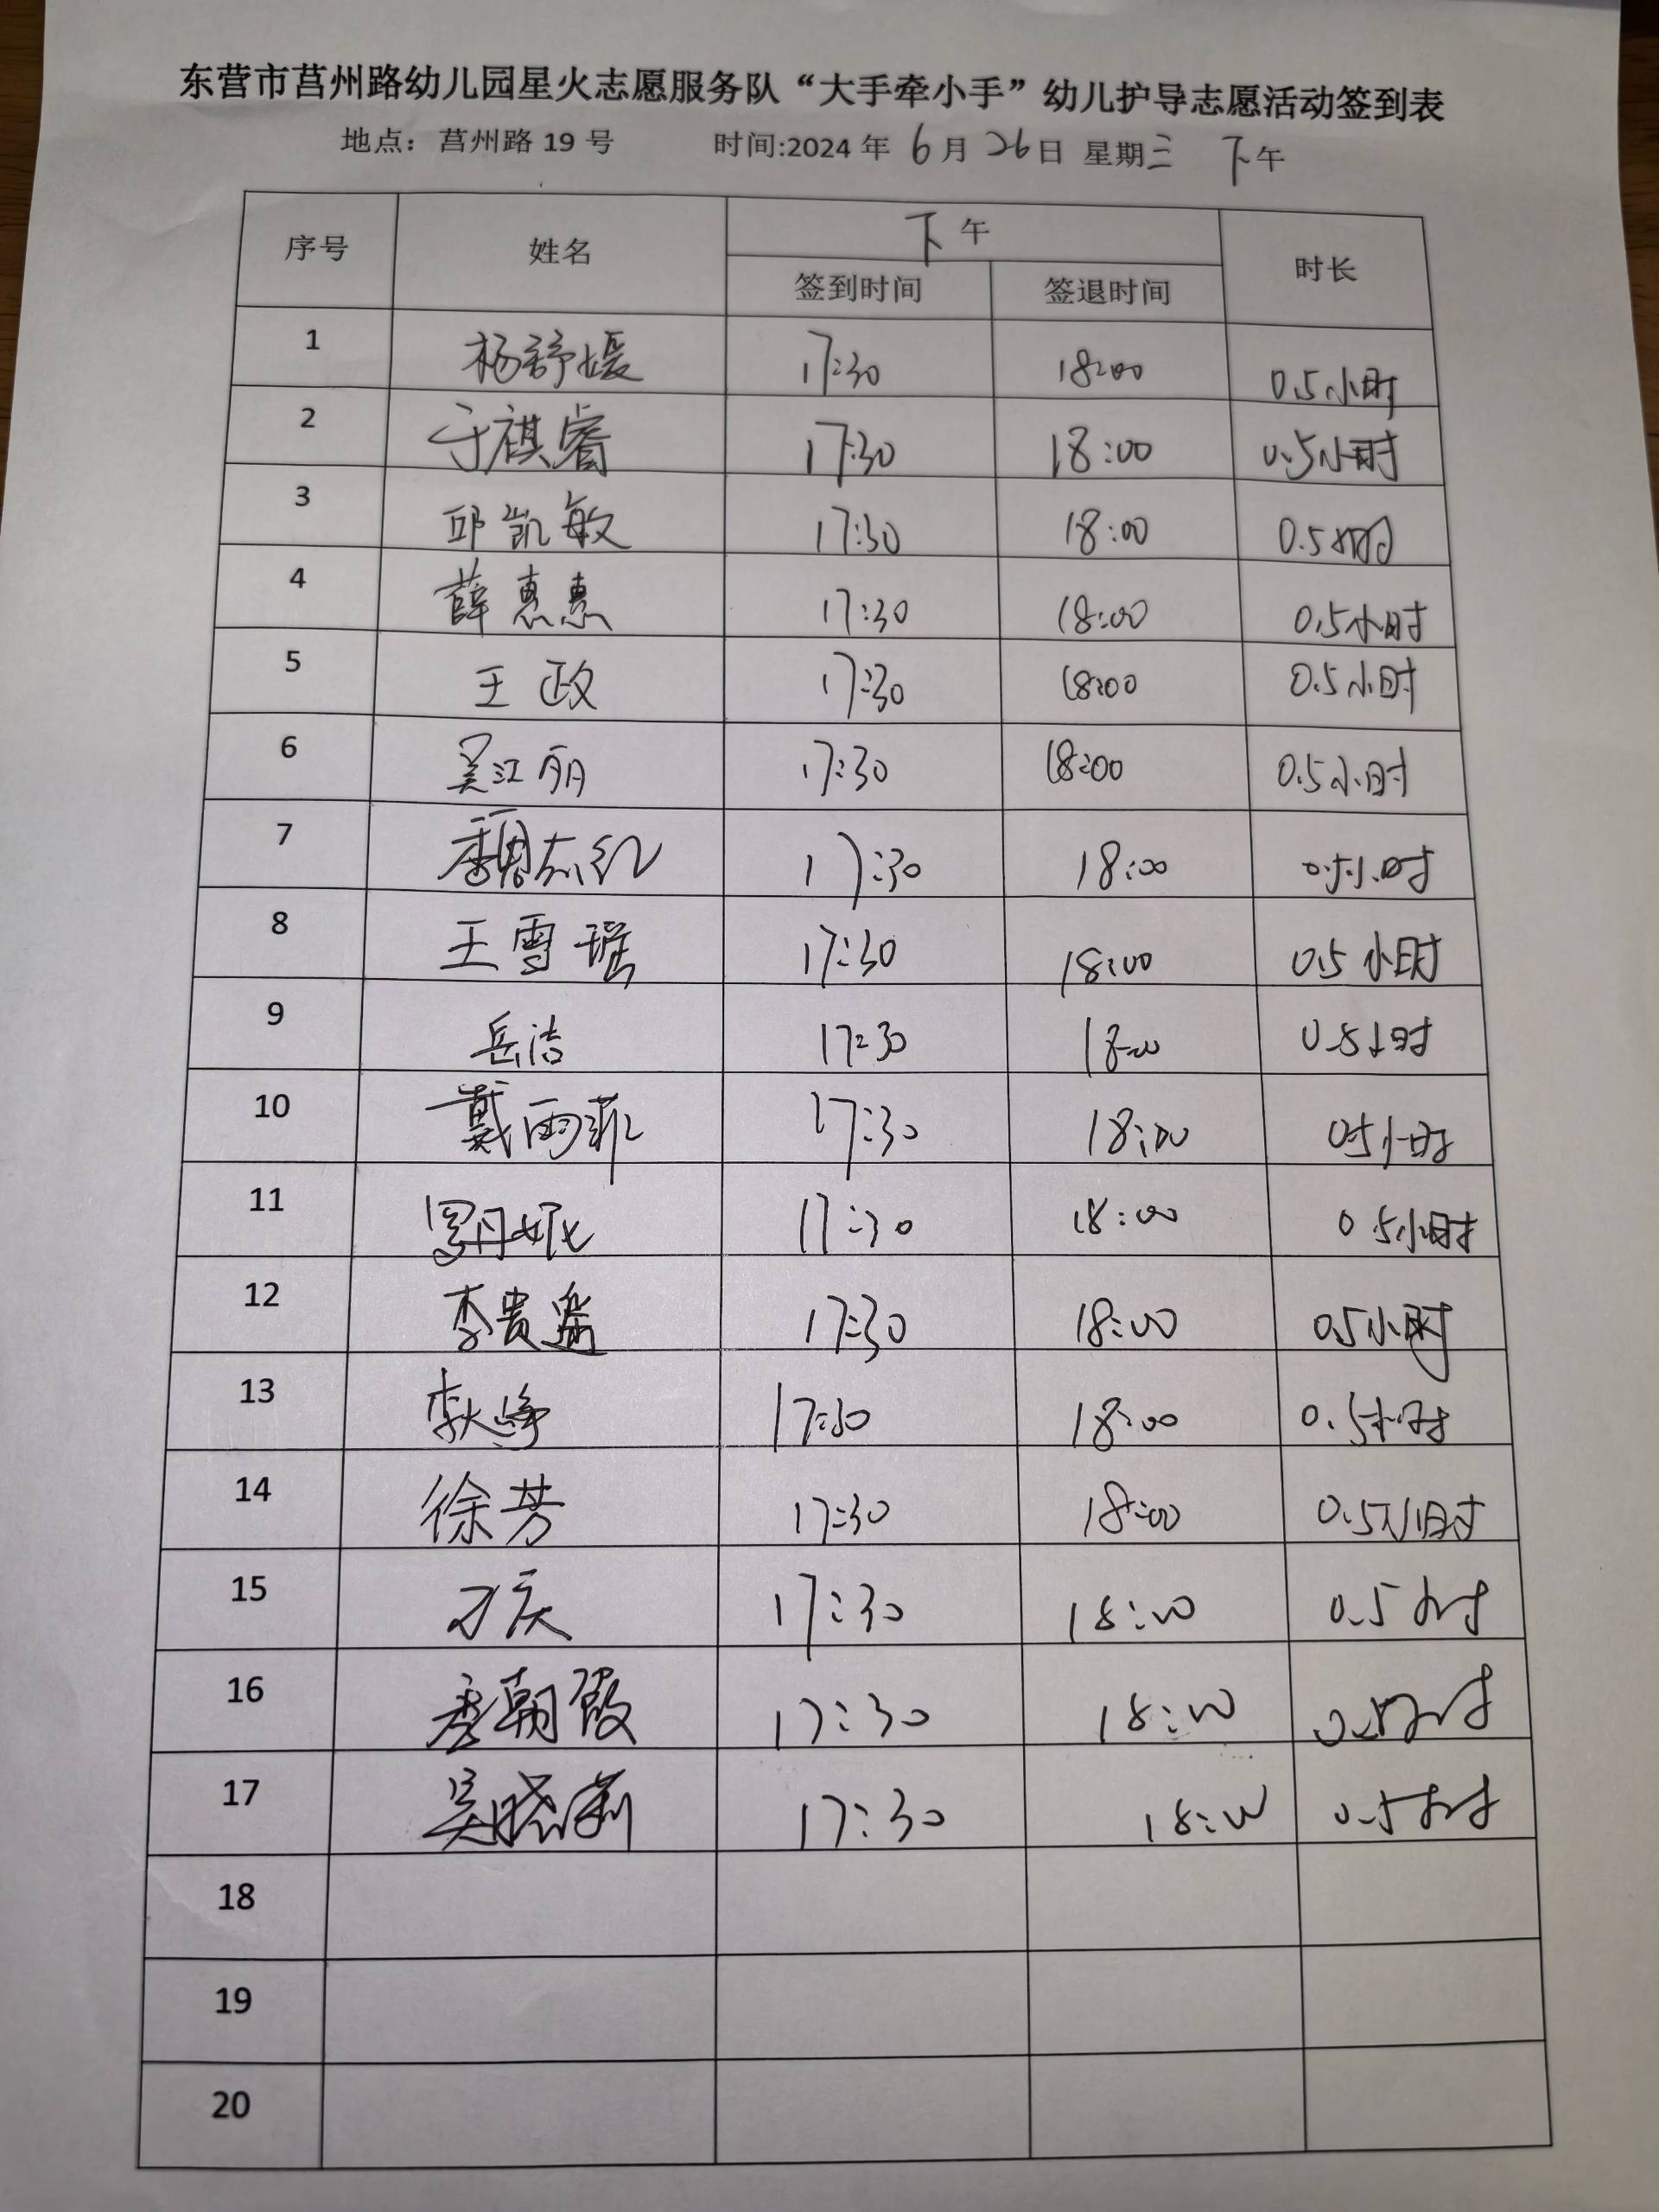 东营市莒州路幼儿园星火志愿服务队“大手牵小手”幼儿护导志愿活动签到表
地点：莒州路 19 号 时间:2024 年 6 月 26 日 星期三 下午
序号 姓名 下午 时长
签到时间 签退时间
1 杨舒媛 17:30 18:00 0.5小时
2 于祺睿 17:30 18:00 0.5小时
3 邱凯敏 17:30 18:00 0.5小时
4 薛惠惠 17:30 18:00 0.5小时
5 王政 17:30 18:00 0.5小时
6 吴江丽 17:30 18:00 0.5小时
7 魏志红 17:30 18:00 0.5小时
8 王雪瑶 17:30 18:00 0.5小时
9 岳洁 17:30 18:00 0.5小时
10 戴雨菲 17:30 18:00 0.5小时
11 罗丹妮 17:30 18:00 0.5小时
12 李贵 17:30 18:00 0.5小时
13 17:30 18:00 0.5小时
14 徐芳 17:30 18:00 0.5小时
15 刁庆 17:30 18:00 0.5小时
16 李朝霞 17:30 18:00 0.5小时
17 吴晓莉 17:30 18:00 0.5小时
18
19
20